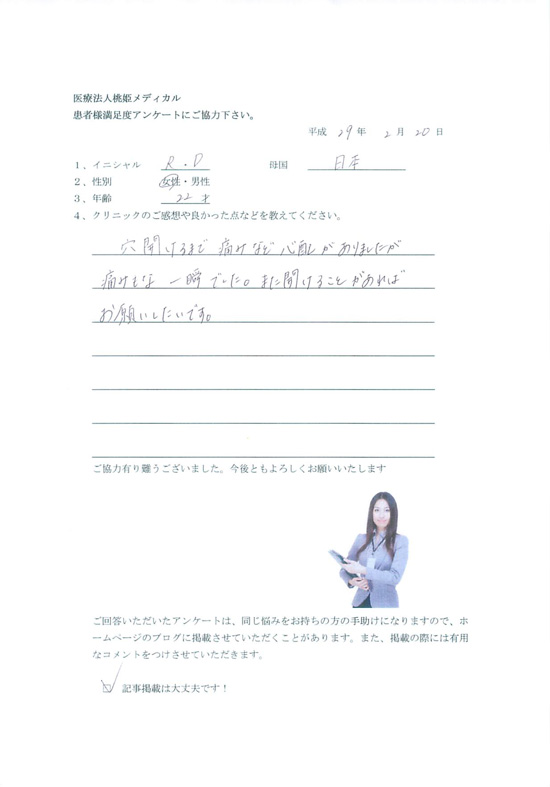 医療法人桃姫メディカル
患者様満足度アンケートにご協力下さい。
平成 29 年 2 月 20 日
1、イニシャル R.D 母国 日本
2、性別 女性・男性
3、年齢 22 才
4、クリニックのご感想や良かった点などを教えてください。
穴開けるまで 痛みなど 心配がありましたが
痛みもな 一瞬でした。また開けることがあれば
お願いしたいです。
ご協力有り難うございました。今後ともよろしくお願いいたします
ご回答いただいたアンケートは、同じ悩みをお持ちの方の手助けになりますので、ホ
ームページのブログに掲載させていただくことがあります。また、掲載の際には有用
なコメントをつけさせていただきます。
記事掲載は大丈夫です！